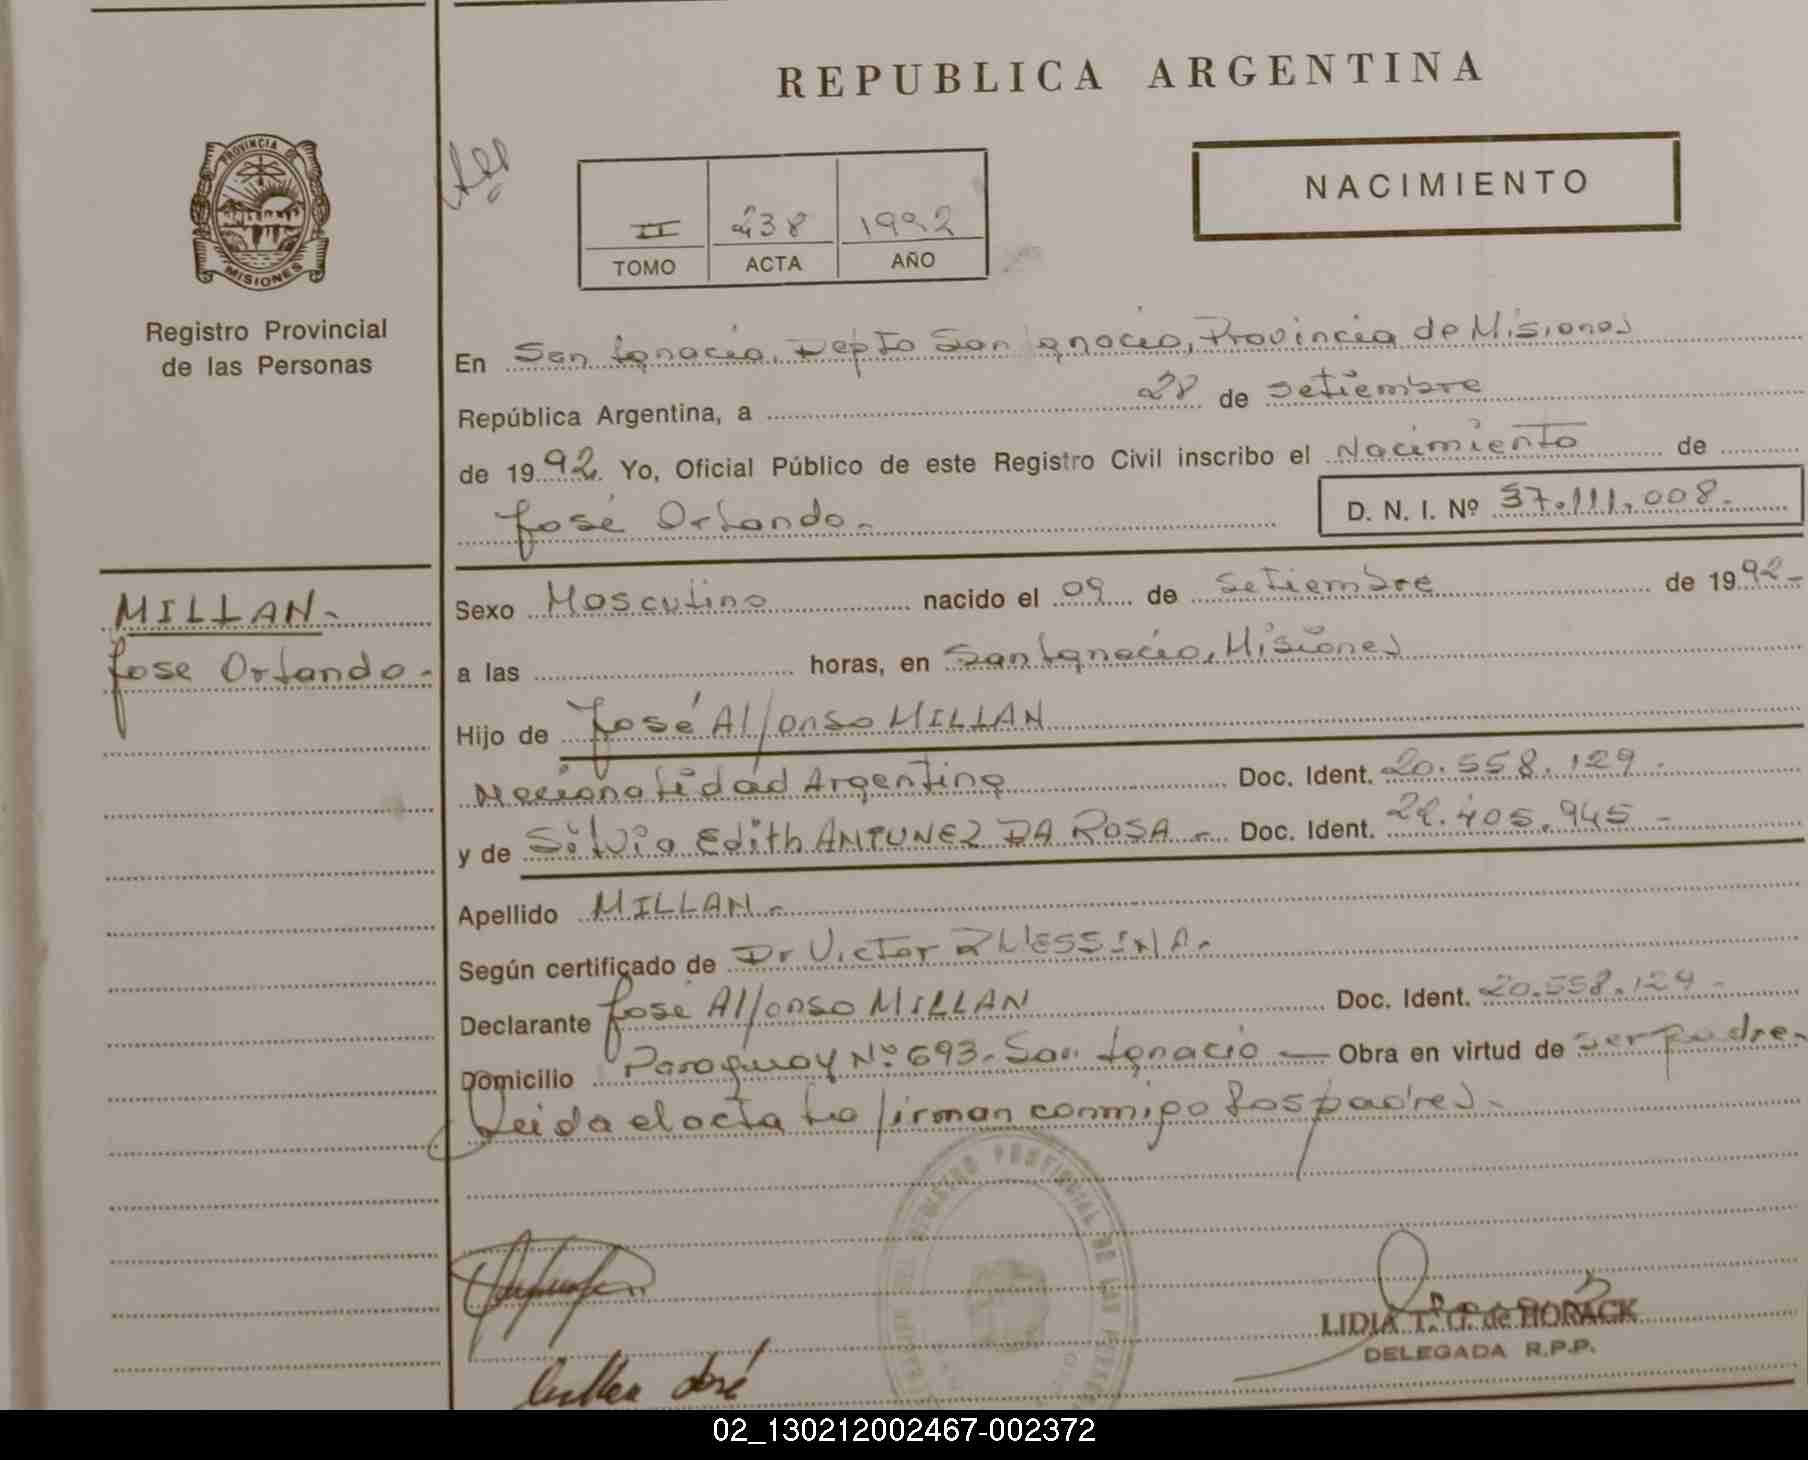 REPUBLICA ARGENTINA
PROVINCIA DE
MISIONES
Registro Provincial
de las Personas
NACIMIENTO
II 238 1992
TOMO ACTA AÑO
En San Ignacio, Depto San Ignacio, Provincia de Misiones
República Argentina, a 28 de Setiembre
de 1992. Yo, Oficial Público de este Registro Civil inscribo el Nacimiento de
José Orlando.-
D. N. I. Nº 37.111.008.-
MILLAN.-
Jose Orlando.-
Sexo Masculino nacido el 09 de Setiembre de 1992-
a las horas, en San Ignacio, Misiones
Hijo de José Alfonso MILLAN
Nacionalidad Argentina Doc. Ident. 20.558.129.-
y de Silvia Edith ANTUNEZ DA ROSA.- Doc. Ident. 22.405.945-
Apellido MILLAN.-
Según certificado de Dr Victor R MESSINA.-
Declarante José Alfonso MILLAN Doc. Ident. 20.558.129-
Domicilio Paraguay Nº 693- San Ignacio — Obra en virtud de ser padre.
Leida el acta la firman conmigo los padres.-
REGISTRO PROVINCIAL DE LAS
LIDIA T. G. de HORACK
DELEGADA R.P.P.
José
02_130212002467-002372